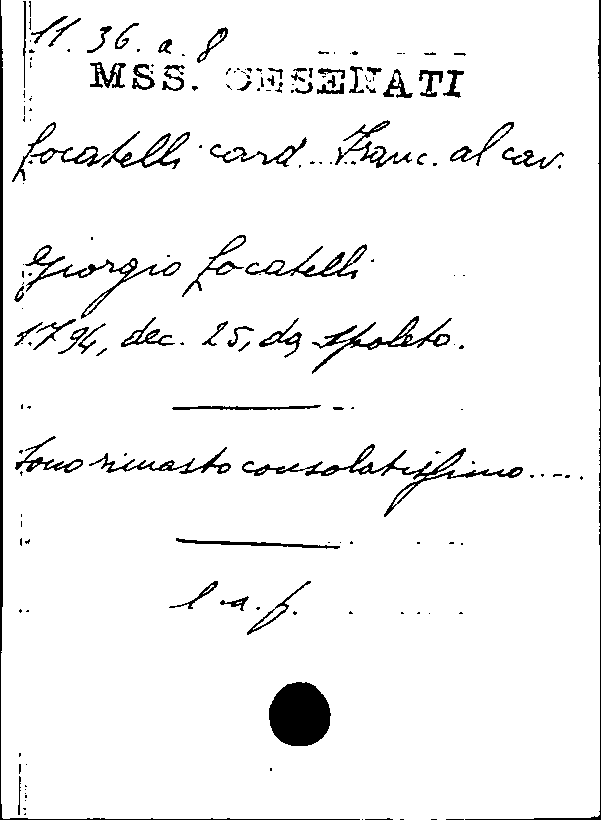 11. 36. a. 8
MSS. CESENATI
Locatelli card. Franc. al cav.
Giorgio Locatelli
1794, dec. 25, da Spoleto.
Sono rimasto consolatissimo.....
l. a. f.